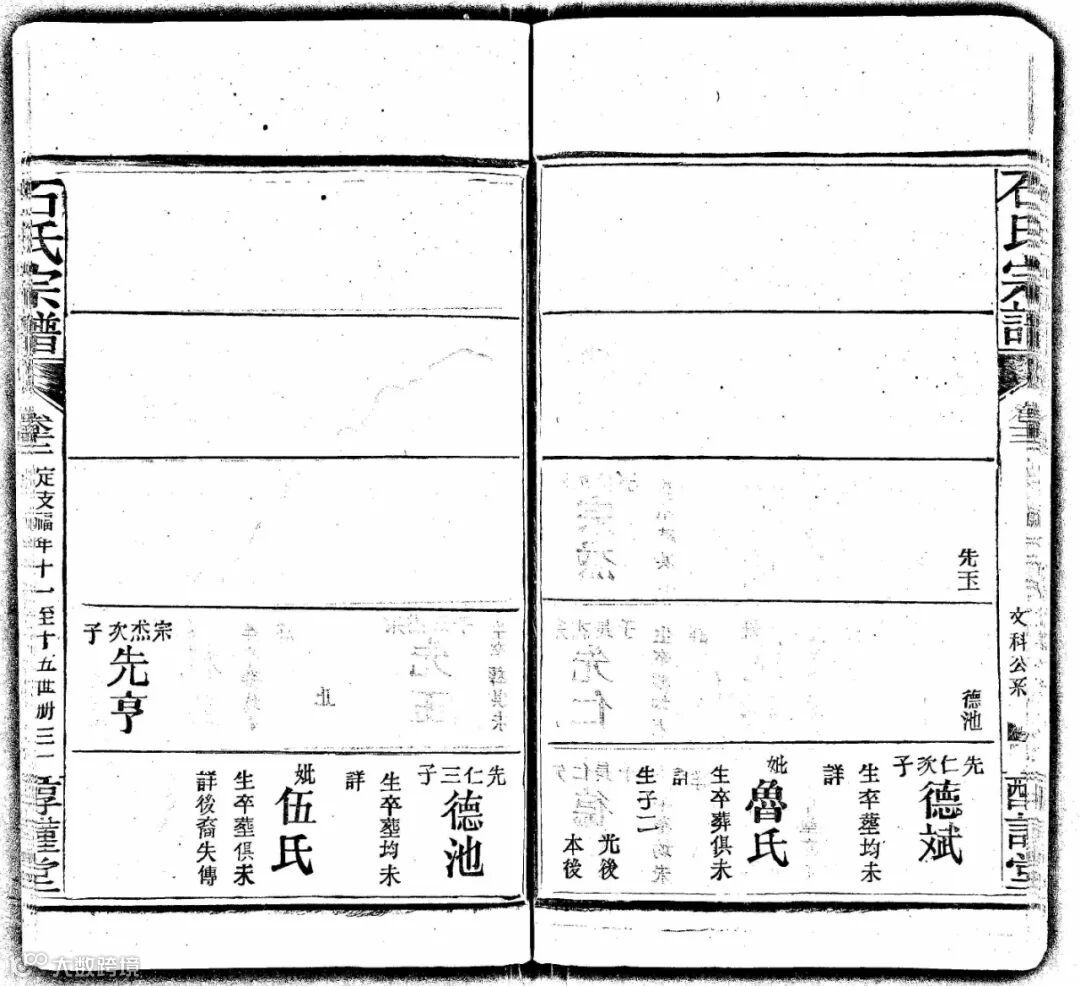 石氏宗譜
卷三
文科公系
先玉
德池
先仁次子
德斌
生卒塟均未
詳
妣魯氏
生卒葬俱未
詳
生子二
光後
本後
宗杰次子
先亨
先仁三子
德池
生卒塟均未
詳
妣伍氏
生卒塟俱未
詳後裔失傳
石氏宗譜
卷三
定支福年十一至十五世册三
大数跨境